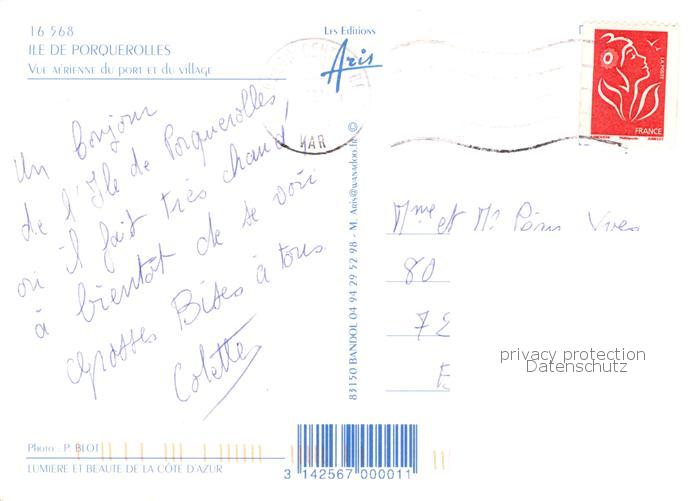 16 568
ILE DE PORQUEROLLES
VUE AÉRIENNE DU PORT ET DU VILLAGE
Les Editions
Aris
VAR
LA POSTE
FRANCE
Un bonjour
de l'Ile de Porquerolles,
où il fait très chaud,
à bientot de se voir
grosses Bises à tous
Colette
83150 BANDOL 04 94 29 52 98 - M. Aris@wanadoo.fr ©
Mme et Mr Yves
80
72
privacy protection
Datenschutz
Photo : P. BLOT
LUMIERE ET BEAUTÉ DE LA CÔTE D'AZUR
3 142567 000011